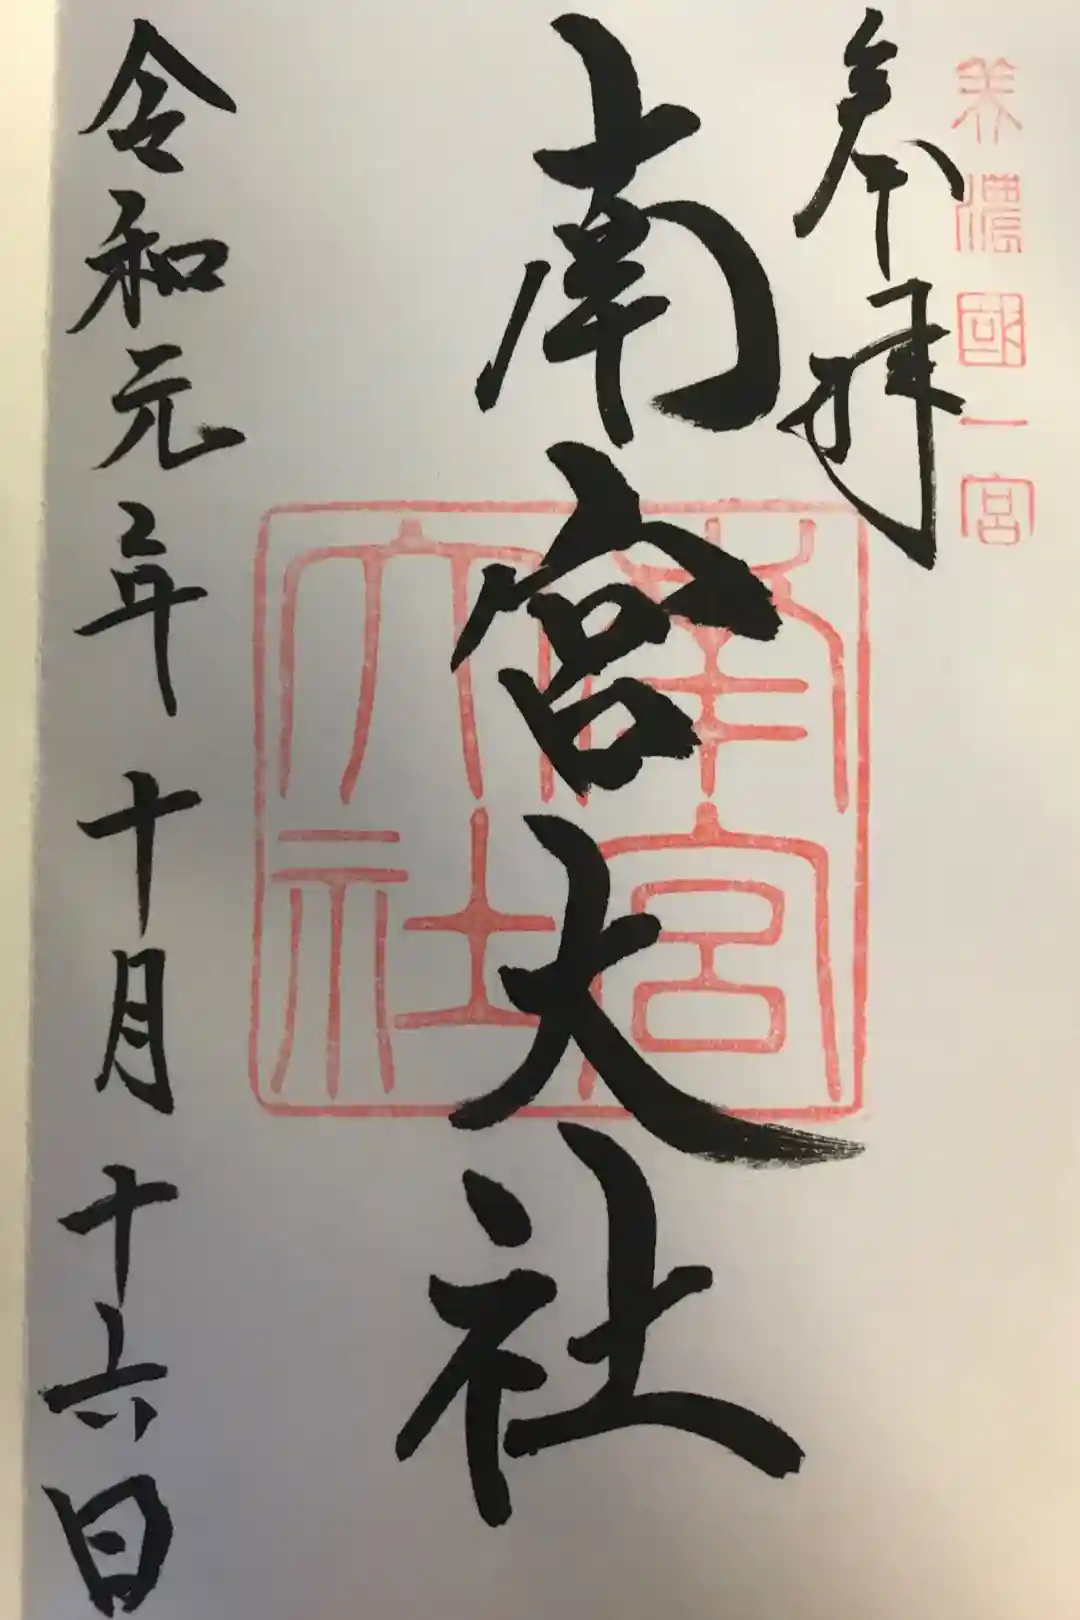 美濃國一宮
奉拝
南宮大社
南宮大社
令和元年十月十六日